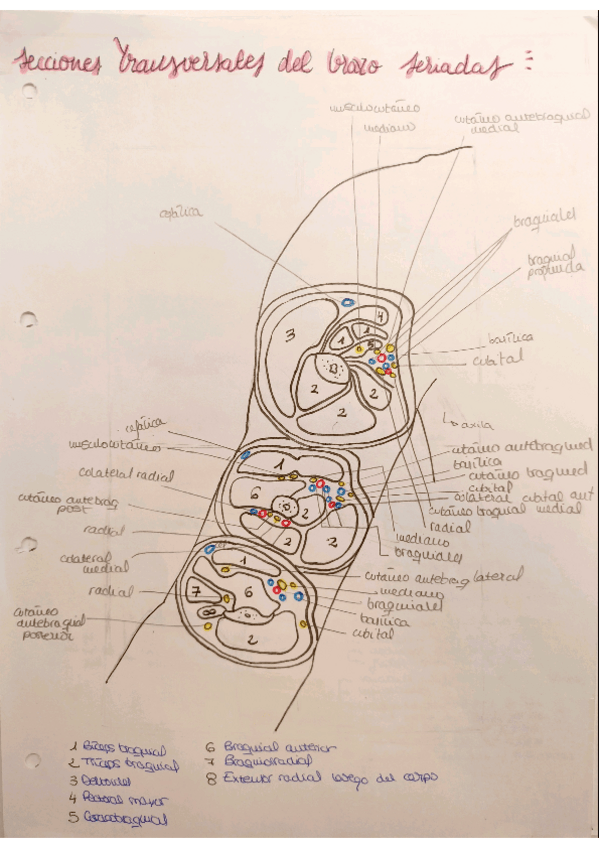 Secciones Transversales del brazo seriadas:
musculocutáneo
mediano
cutáneo antebraquial
medial
cefálica
braquiales
braquial
profunda
3
4
1
1
5
2
2
2
basílica
cubital
axila
cefálica
musculocutáneo
colateral radial
cutáneo antebraq
post
radial
1
6
2
2
2
cutáneo antebraqmed
basílica
cutáneo braqmed
cubital
colateral cubital ant
cutáneo braquial medial
radial
mediano
braquiales
colateral
medial
radial
cutáneo
antebraquial
posterior
1
7
6
8
2
cutáneo antebraq lateral
mediano
braquiales
basílica
cubital
1 Bíceps braquial
2 Tríceps braquial
3 Deltoides
4 Pectoral mayor
5 Coracobraquial
6 Braquial anterior
7 Braquiorradial
8 Extensor radial largo del carpo